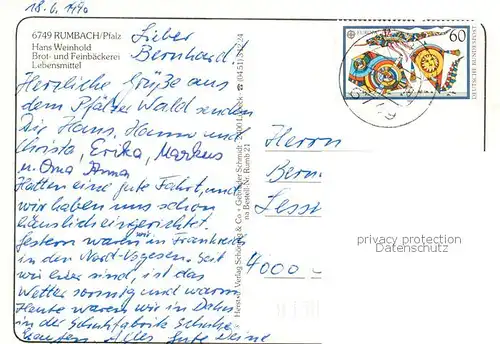 18.6.1990
6749 RUMBACH/Pfalz
Hans Weinhold
Brot- und Feinbäckerei
Lebensmittel
Lieber
Bernhard!
Herzliche Grüße aus
dem Pfälzer Wald senden
Dir Hans, Hanna und
Christa, Erika, Markus
u. Oma Anna
Hatten eine gute Fahrt, und
wir haben uns schon
häuslich eingerichtet.
Gestern waren wir in Frankreich
in den Nord-Vogesen. Seit
wir hier sind, ist das
Wetter sonnig und warm
Heute waren wir in Dahn
in der Schuhfabrik Schuhe
kaufen. Alles Gute Deine
Herst. u. Verlag Schöning & Co · Gebrüder Schmidt · 2400 Lübeck
na Bestell-Nr. Rumb 21
EUROPA
60
DEUTSCHE BUNDESPOST
Herrn
Bern
Lessi
4000
privacy protection
Datenschutz